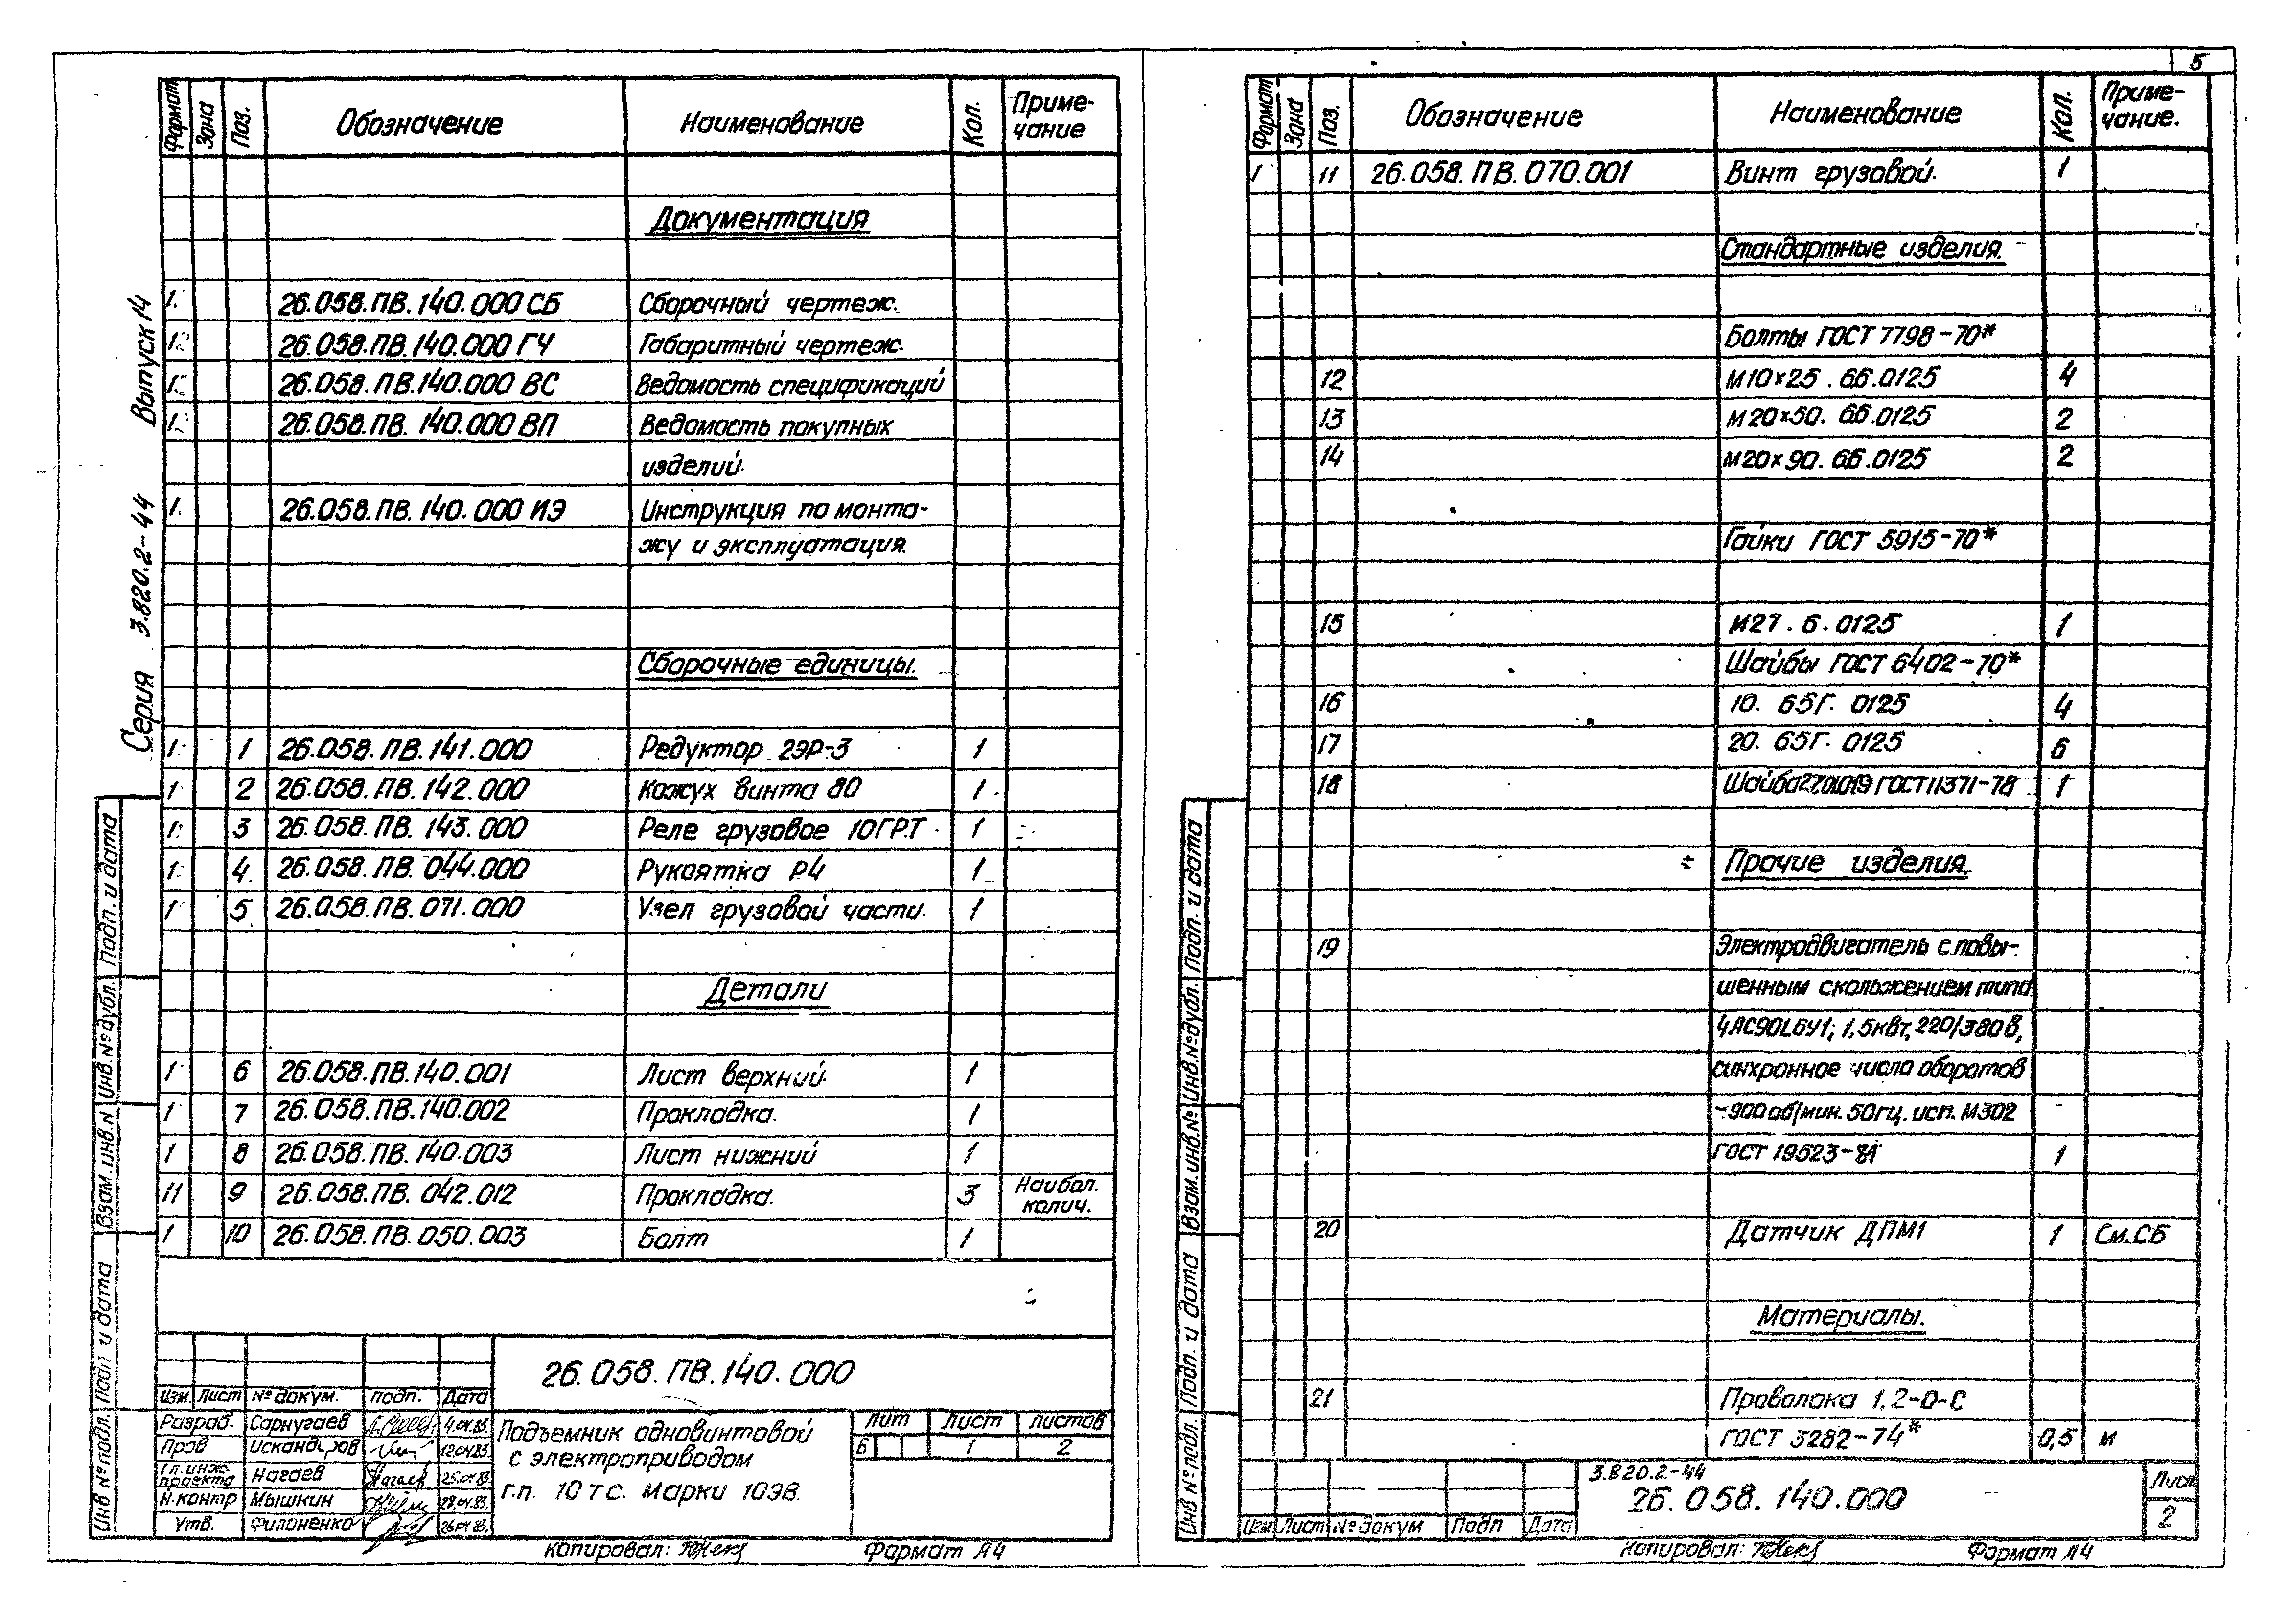 5
Серия 3.820.2-44 Выпуск 14
Формат Зона Поз. Обозначение Наименование Кол. Приме-чание
Документация
26.058.ПВ.140.000 СБ Сборочный чертеж.
26.058.ПВ.140.000 ГЧ Габаритный чертеж.
26.058.ПВ.140.000 ВС Ведомость спецификаций
26.058.ПВ.140.000 ВП Ведомость покупных
изделий.
26.058.ПВ.140.000 ИЭ Инструкция по монта-
жу и эксплуатация.
Сборочные единицы.
1 26.058.ПВ.141.000 Редуктор 2ЭР-3 1
2 26.058.ПВ.142.000 Кожух винта 80 1
3 26.058.ПВ.143.000 Реле грузовое 10ГРТ 1
4 26.058.ПВ.044.000 Рукоятка Р4 1
5 26.058.ПВ.071.000 Узел грузовой части. 1
Детали
1 6 26.058.ПВ.140.001 Лист верхний. 1
1 7 26.058.ПВ.140.002 Прокладка. 1
1 8 26.058.ПВ.140.003 Лист нижний 1
11 9 26.058.ПВ.042.012 Прокладка. 3 Наибол. колич.
1 10 26.058.ПВ.050.003 Болт 1
26.058.ПВ.140.000
Изм Лист № докум. подп. Дата
Разраб. Сарнугаев 4.04.83.
Пров Искандиров 12.04.83.
Гл. инж. проекта Нагаев 25.04.83.
Н.контр Мышкин 28.04.83.
Утв. Филоненко
Подъемник одновинтовой
с электроприводом
г.п. 10 тс. марки 10ЭВ.
Лит Лист Листов
Б 1 2
Копировал: Формат А4
Подп. и дата
Инв.№ дубл.
Взам.инв.№
Подп и дата
Инв № подл.
Формат Зона Поз. Обозначение Наименование Кол. Приме-чание.
1 11 26.058.ПВ.070.001 Винт грузовой. 1
Стандартные изделия.
Болты ГОСТ 7798-70*
12 М10×25.66.0125 4
13 М20×50.66.0125 2
14 М20×90.66.0125 2
Гайки ГОСТ 5915-70*
15 М27.6.0125 1
Шайбы ГОСТ 6402-70*
16 10. 65Г. 0125 4
17 20. 65Г. 0125 6
18 Шайба 27.01.019 ГОСТ 11371-78 1
Прочие изделия.
19 Электродвигатель с повы-
шенным скольжением типа
4АС90L6У1; 1,5квт, 220/380в,
синхронное число оборотов
-900 об/мин. 50гц. исп. М302
ГОСТ 19523-81 1
20 Датчик ДПМ1 1 См.СБ
Материалы.
21 Проволока 1,2-О-С
ГОСТ 3282-74* 0,5 м
3.820.2-44
26.058.140.000
Лист
2
Изм Лист № докум Подп Дата
Копировал: Формат А4
Подп. и дата
Инв.№ дубл.
Взам.инв.№
Подп. и дата
Инв № подл.